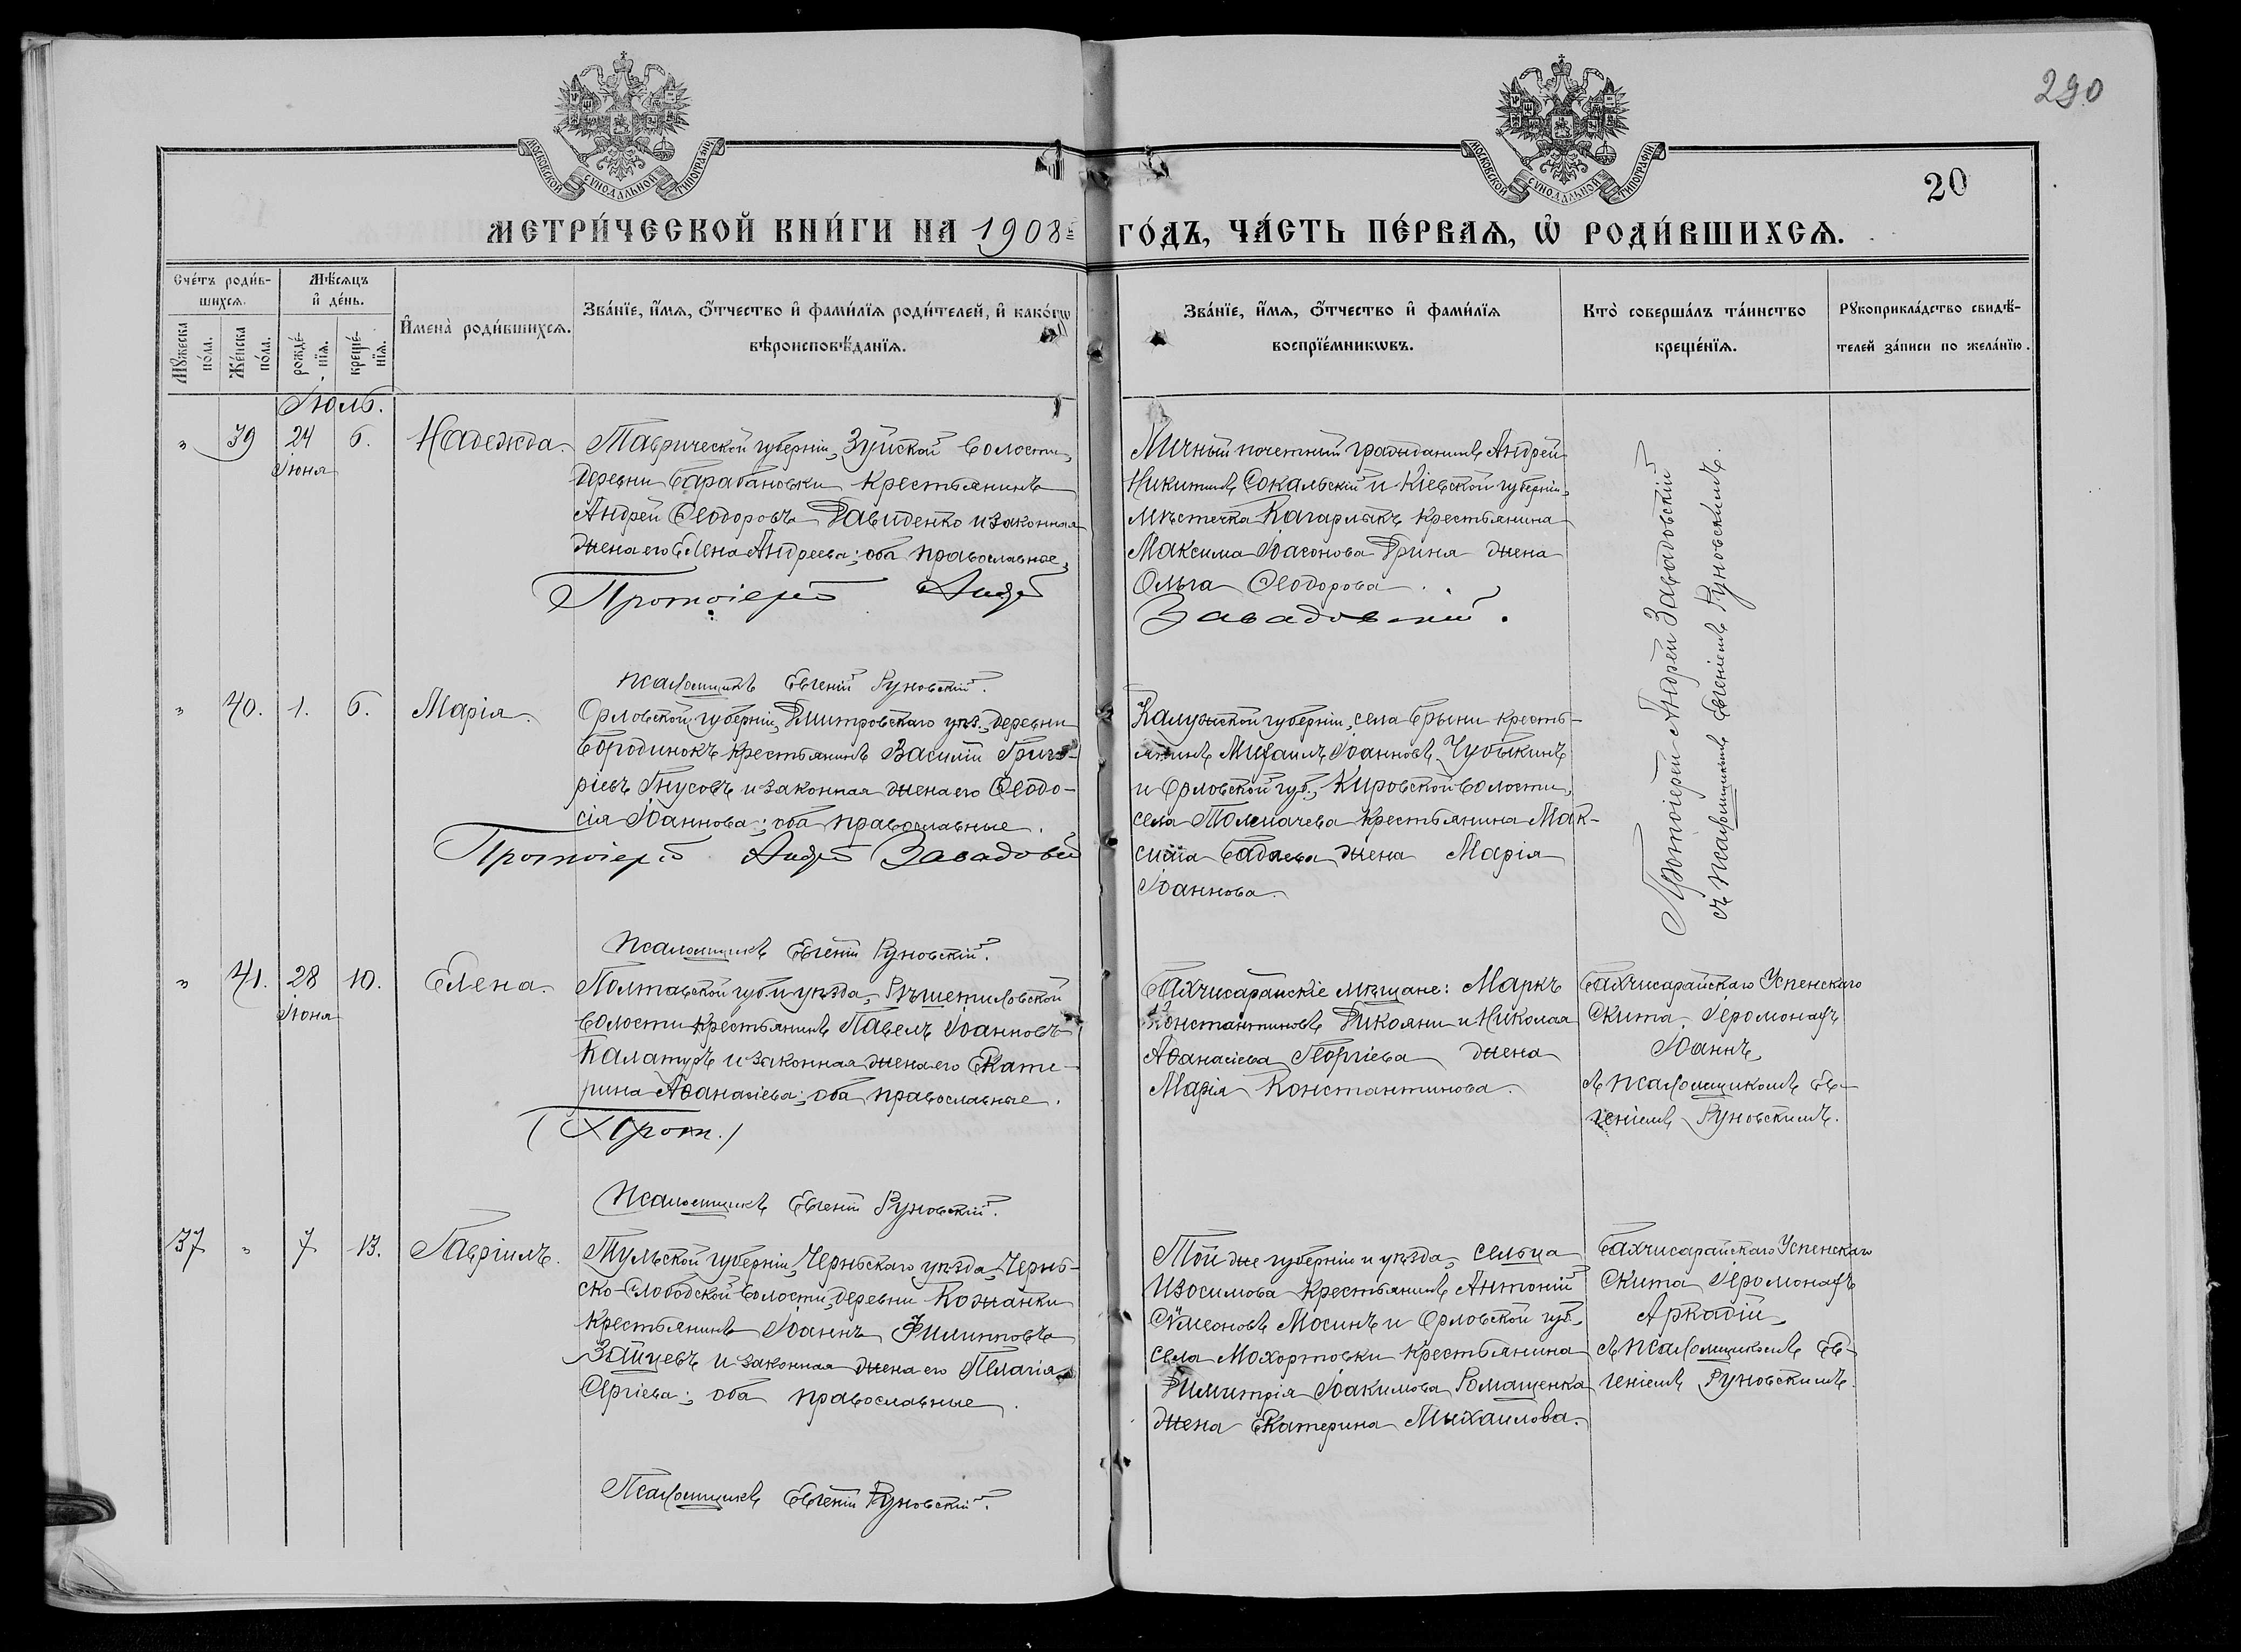 290
20
МОСКОВСКОЙ СѴНОДАЛЬНОЙ ТИПОГРАФІИ
МОСКОВСКОЙ СѴНОДАЛЬНОЙ ТИПОГРАФІИ
МЕТРИ́ЧЕСКОЙ КНИ́ГИ НА 1908й ГО́ДЪ, ЧА́СТЬ ПЕ́РВАѦ, Ѡ҆ РОДИ́ВШИХСѦ.
Счéтъ роди́в-
шихсѧ.
Мꙋжеска по́ла.
Же́нска по́ла.
Мѣ́сѧцъ
и҆ де́нь.
рожде́-
нїѧ.
креще́-
нїѧ.
И҆мена̀ роди́вшихсѧ.
Зва́нїе, и҆́мѧ, ѻ҆́тчество и҆ фами́лїѧ роди́телей, и҆ како́гѡ
вѣроисповѣ́данїѧ.
Зва́нїе, и҆́мѧ, ѻ҆́тчество и҆ фами́лїѧ
воспрїе́мникѡвъ.
Кто̀ соверша́лъ та́инство
креще́нїѧ.
Рꙋкоприкла́дство свидѣ́-
телей за́писи по жела́нїю.
Іюль.
" 39 24 6. Надежда.
Іюня
Таврической губерніи, Зуйской волости,
деревни Барабановки крестьянинъ
Андрей Ѳеодоровъ Давиденко и законная
жена его Елена Андреева; оба православные,
Протоіерей Андрей
Личный почетный гражданинъ Андрей
Никитинъ Сокальскій и Кіевской губерніи,
мѣстечка Кагарлыкъ крестьянина
Максима Іасонова Гриня жена
Ольга Ѳеодорова.
Завадовский.
Протоіерей Андрей Завадовскій
съ псаломщикомъ Евгеніемъ Руновскимъ.
псаломщикъ Евгеній Руновскій.
" 40. 1. 6. Марія.
Орловской губерніи, Дмитровскаго уѣз., деревни
Бородинокъ крестьянинъ Василій Григо-
ріевъ Гнусовъ и законная жена его Ѳеодо-
сія Іоаннова; оба православные.
Протоіерей Андрей Завадовск
Калужской губерніи, села Брыни кресть-
янинъ Михаилъ Іоанновъ Чубыкинъ
и Орловской губ., Кировской волости,
села Толмачева крестьянина Мак-
сима Бадаева жена Марія
Іоаннова.
Псаломщикъ Евгеній Руновскій.
" 41. 28 10. Елена.
Іюня
Полтавской губ. и уѣзда, Рѣшетиловской
волости крестьянинъ Павелъ Іоанновъ
Калатуръ и законная жена его Екате-
рина Аѳанасіева; оба православные.
(Прот.)
Бахчисарайскіе мѣщане: Маркъ
Константиновъ Дикояни и Николая
Аѳанасіева Георгіева жена
Марія Константинова.
Бахчисарайскаго Успенскаго
Скита Іеромонахъ
Іоаннъ,
съ псаломщикомъ Ев-
геніемъ Руновскимъ.
Псаломщикъ Евгеній Руновскій.
37 " 7 13. Гавріилъ.
Тульской губерніи, Черньскаго уѣзда, Чернь-
ско-Слободской волости, деревни Кожанки
крестьянинъ Іоаннъ Филипповъ
Зайцевъ и законная жена его Пелагія
Сергіева; оба православные.
Той же губерніи и уѣзда, сельца
Изосимова крестьянинъ Антоній
Симеоновъ Мосинъ и Орловской губ.,
села Мохортовки крестьянина
Димитрія Іоакимова Ромащенка
жена Екатерина Михаилова.
Бахчисарайскаго Успенскаго
Скита Іеромонахъ
Аркадій,
съ псаломщикомъ Ев-
геніемъ Руновскимъ.
Псаломщикъ Евгеній Руновскій.